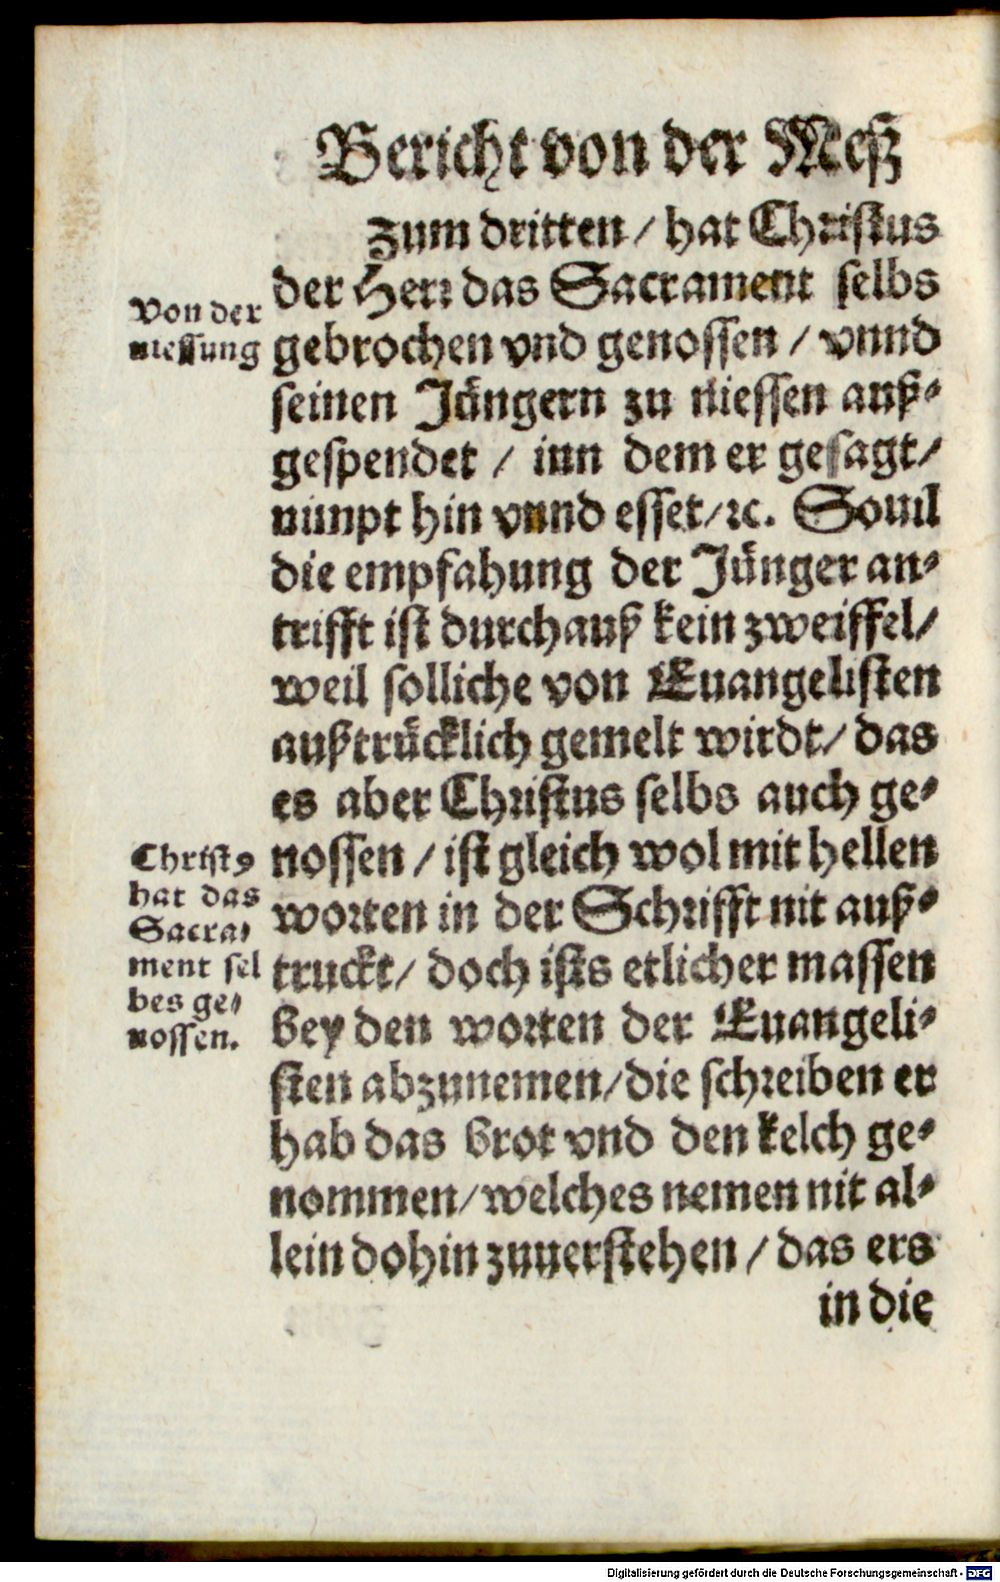 Bericht von der Meß
Zum dritten / hat Christus
der Herr das Sacrament selbs
gebrochen vnd genossen / vnnd
seinen Jüngern zu niessen auß-
gespendet / inn dem er gesagt /
nimpt hin vnnd esset / ꝛc. Souil
die empfahung der Jünger an-
trifft ist durchauß kein zweiffel /
weil solliche von Euangelisten
außtrücklich gemelt wirdt / das
es aber Christus selbs auch ge-
nossen / ist gleich wol mit hellen
worten in der Schrifft nit auß-
truckt / doch ists etlicher massen
bey den worten der Euangeli-
sten abzunemen / die schreiben er
hab das brot vnd den kelch ge-
nommen / welches nemen nit al-
lein dohin zuuerstehen / das ers
in die
Von der
niessung
Christꝰ
hat das
Sacra-
ment sel
bes ge-
nossen.
Digitalisierung gefördert durch die Deutsche Forschungsgemeinschaft - DFG